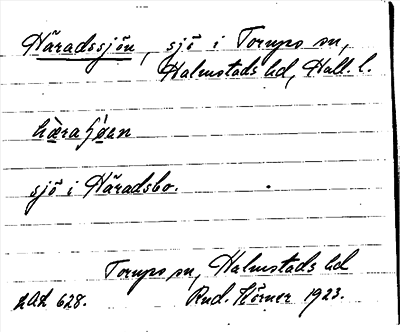 Häradssjön, sjö i Torups sn,
Halmstads hd, Hall. l.
hæraʃøan
sjö i Häradsbo.
Torups sn, Halmstads hd
LAL 628. Rud. Körner 1923.